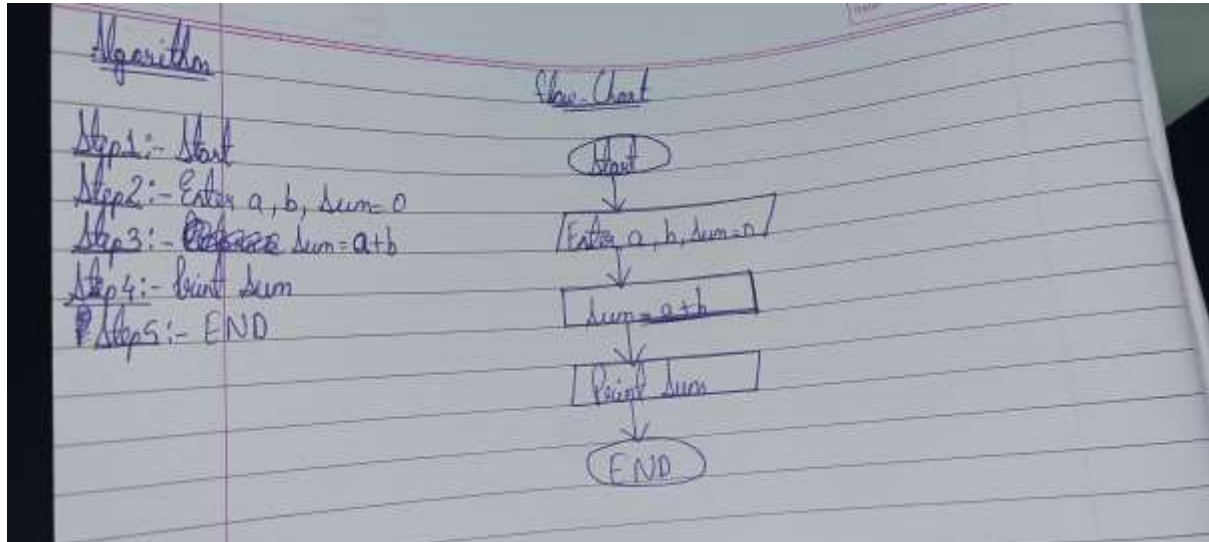 Algorithm
Step1:- Start
Step2:- Enter a, b, Sum=0
Step3:- Sum=a+b
Step4:- Print Sum
Step5:- END
Flow-Chart
Start
Enter a, b, Sum=0
Sum=a+b
Print Sum
END